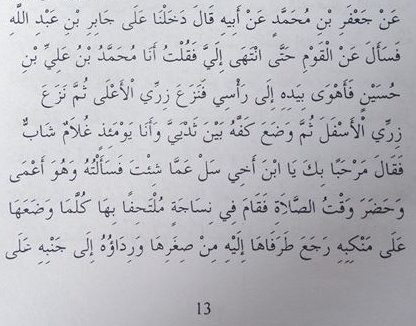 عَنْ جَعْفَرِ بْنِ مُحَمَّدٍ عَنْ أَبِيهِ قَالَ دَخَلْنَا عَلَى جَابِرِ بْنِ عَبْدِ اللَّهِ
فَسَأَلَ عَنْ الْقَوْمِ حَتَّى انْتَهَى إِلَيَّ فَقُلْتُ أَنَا مُحَمَّدُ بْنُ عَلِيِّ بْنِ
حُسَيْنٍ فَأَهْوَى بِيَدِهِ إِلَى رَأْسِي فَنَزَعَ زِرِّي الْأَعْلَى ثُمَّ نَزَعَ
زِرِّي الْأَسْفَلَ ثُمَّ وَضَعَ كَفَّهُ بَيْنَ ثَدْيَيَّ وَأَنَا يَوْمَئِذٍ غُلَامٌ شَابٌّ
فَقَالَ مَرْحَبًا بِكَ يَا ابْنَ أَخِي سَلْ عَمَّا شِئْتَ فَسَأَلْتُهُ وَهُوَ أَعْمَى
وَحَضَرَ وَقْتُ الصَّلَاةِ فَقَامَ فِي نِسَاجَةٍ مُلْتَحِفًا بِهَا كُلَّمَا وَضَعَهَا
عَلَى مَنْكِبِهِ رَجَعَ طَرَفَاهَا إِلَيْهِ مِنْ صِغَرِهَا وَرِدَاؤُهُ إِلَى جَنْبِهِ عَلَى
13